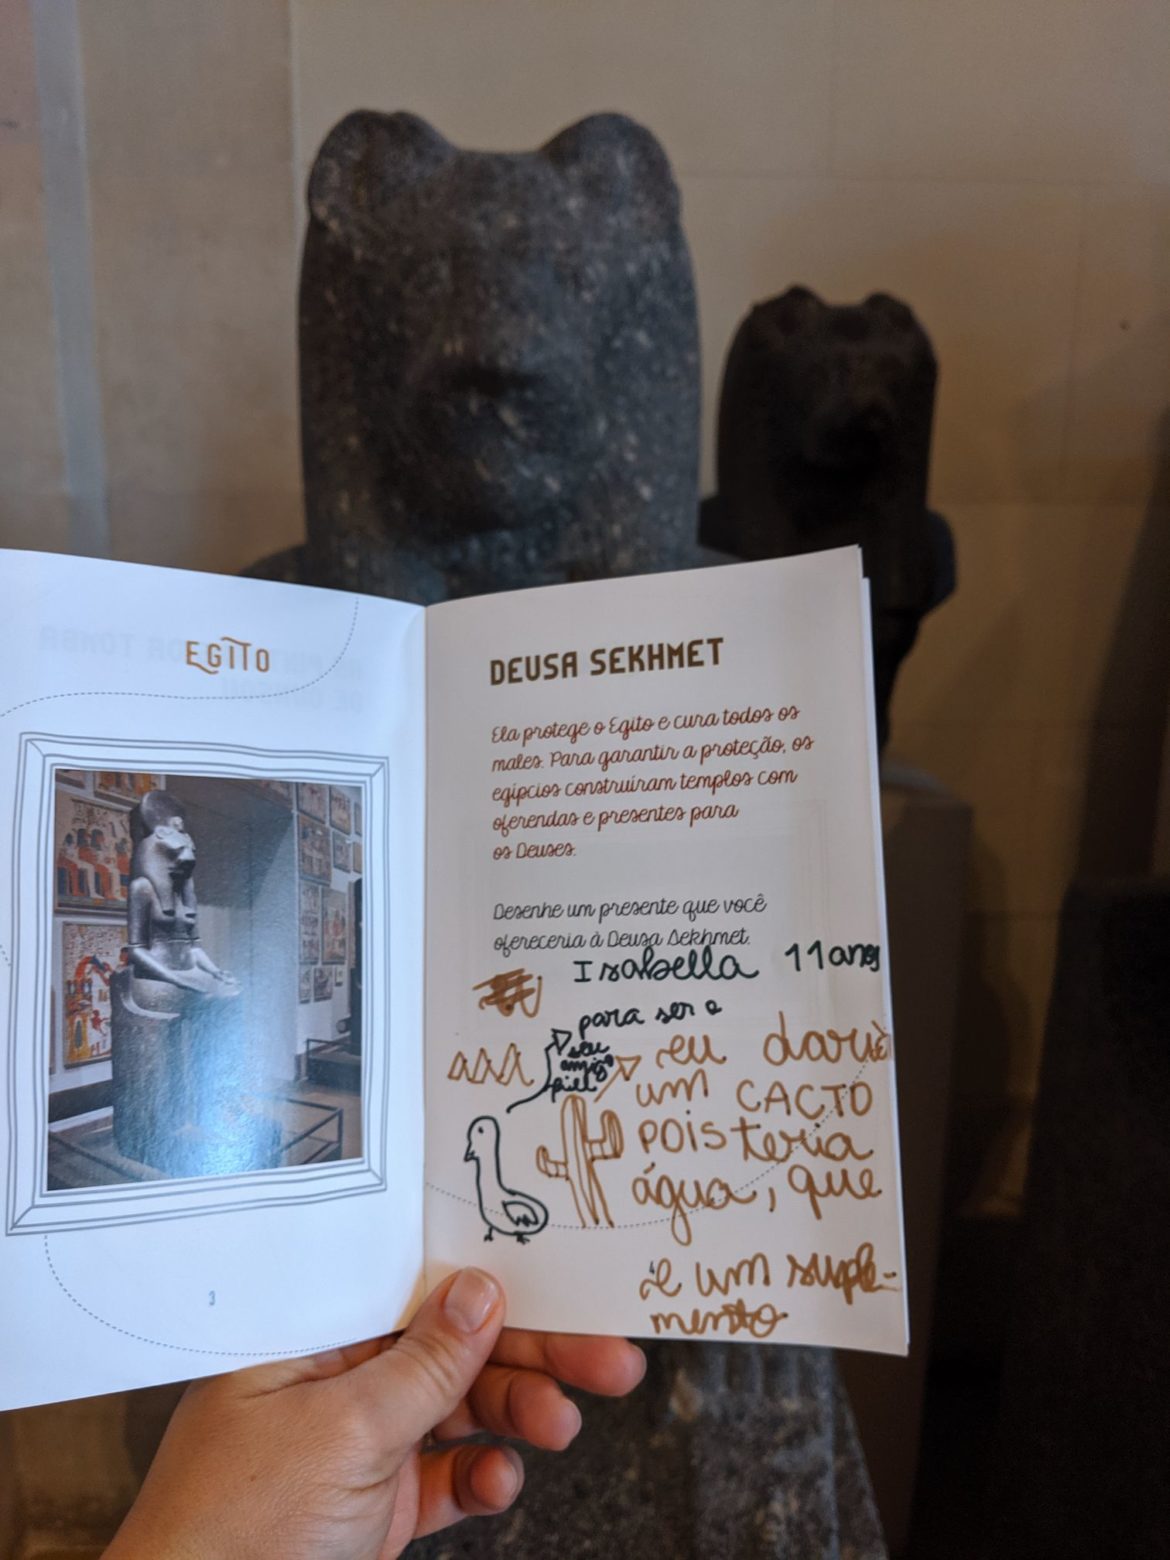 EGITO
3
DEUSA SEKHMET
Ela protege o Egito e cura todos os
males. Para garantir a proteção, os
egípcios construíram templos com
oferendas e presentes para
os Deuses.
Desenhe um presente que você
ofereceria à Deusa Sekhmet.
Isabella 11 anos
para ser o
seu
amigo
fiel
eu daria
um CACTO
pois teria
água, que
é um suple-
mento